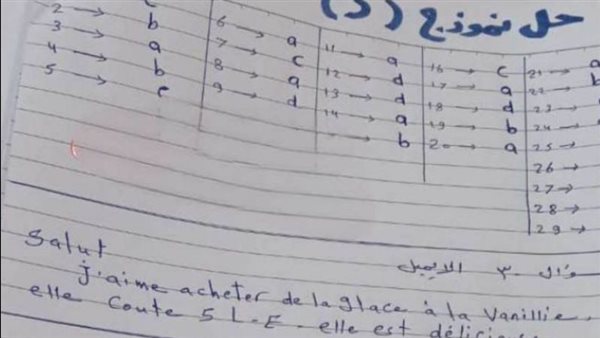 حل نموذج (د)
2 → b
3 → a
4 → b
5 → c
6 → a
7 → c
8 → a
9 → d
11 → a
12 → d
13 → d
14 → a
→ b
16 → c
17 → a
18 → d
19 → b
20 → a
21 → a
22 → b
23 →
24 →
25 →
26 →
27 →
28 →
29 →
٣٠ الايميل
Salut
J'aime acheter de la glace à la Vanillie.
elle coute 5 L.E. elle est